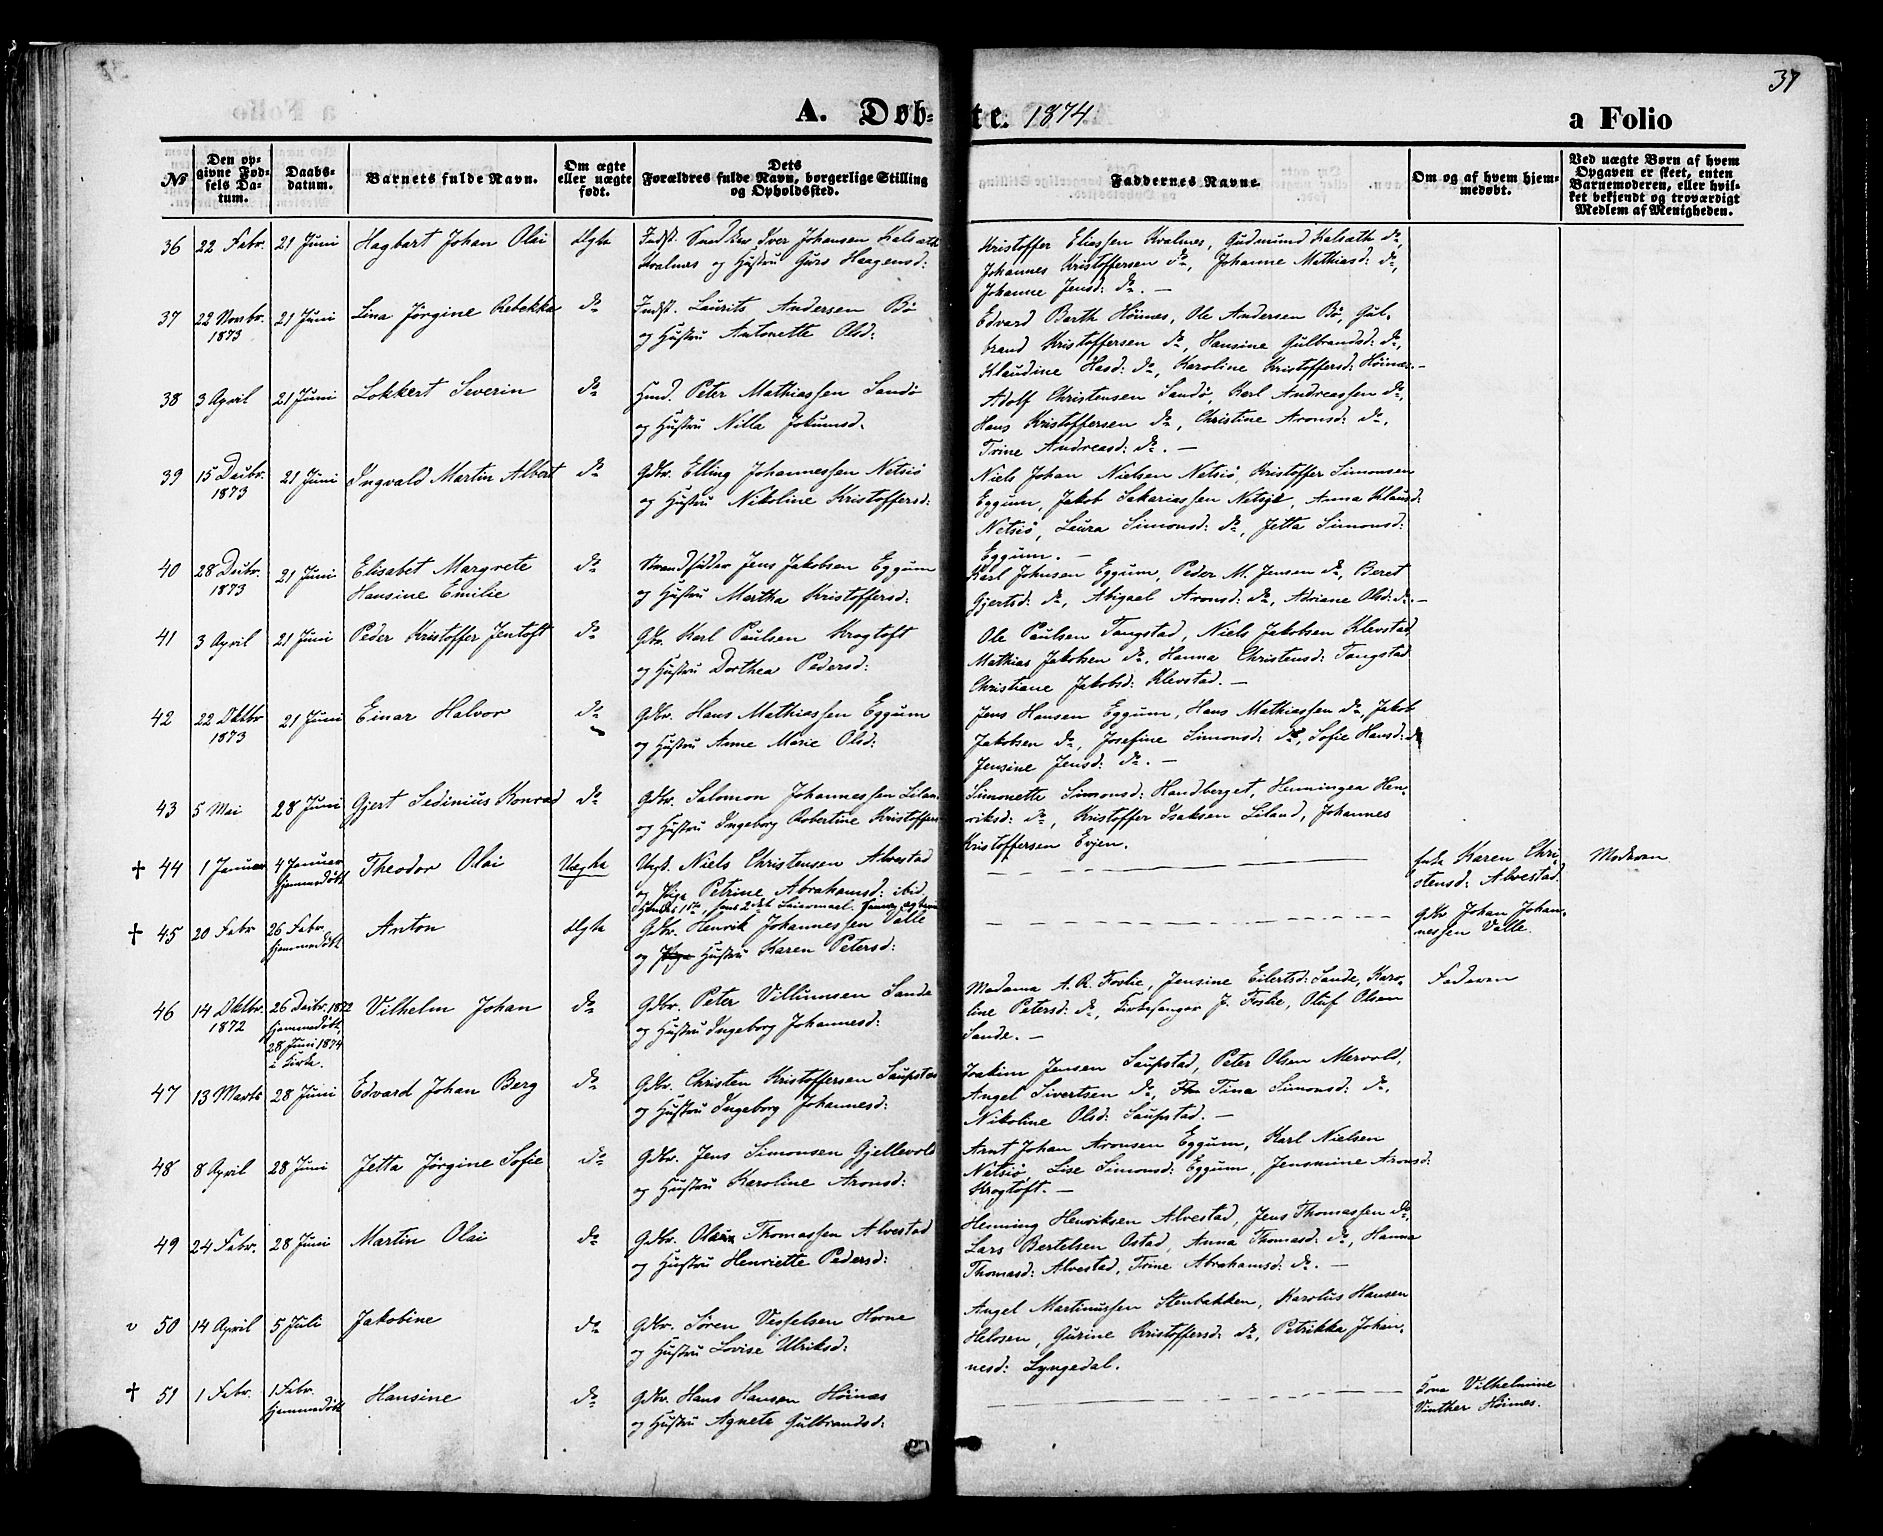 37
A. Døb-te. 1874 a Folio
№ Den op-givne Fød-sels Da-tum. Daabs-datum. Barnets fulde Navn. Om ægte eller uægte født. Dets Forældres fulde Navn, borgerlige Stilling og Opholdsted. Faddernes Navne. Om og af hvem hjem-medøbt. Ved uægte Børn af hvem Opgaven er skeet, enten Barnemoderen, eller hvil-ket bekjendt og troværdigt Medlem af Menigheden.
36 22 Febr. 21 Juni Hagbart Johan Olai Ægte Indst. Snedker Iver Johansen Kalsath
Kvalnes og Hustru Guro Haagensd:
Kristoffer Eliassen Kvalnes, Gudmund Kalsath do,
Johannes Kristoffersen do, Johanne Mathiasd: do,
Johanne Jensd: do. —
37 22 Novbr. 1873 21 Juni Lina Jørgine Rebekka do Indst. Laurits Andersen Bø
og Hustru Antonette Olsd:
Edvard Barth Høines, Ole Andersen Bø, Gul-
brand Kristoffersen do, Hansine Gulbrandsd: do,
Klaudine Hasd: do, Karoline Kristoffersd: Høines.—
38 3 April 21 Juni Lokkert Severin do Hmd. Peter Mathiassen Sandø
og Hustru Nilla Jokumsd.
Adolf Christensen Sandø, Karl Andreassen do,
Hans Kristoffersen do, Christine Aronsd: do,
Trine Andreasd: do. —
39 15 Decbr. 1873 21 Juni Ingvald Martin Albert do Gdbr. Elling Johannessen Netsiø
og Hustru Nikoline Kristoffersd:
Niels Johan Nielsen Netsiø, Kristoffer Simonsen
Eggum, Jakob Sakariassen Netsjø, Anna Klausd:
Netsiø, Laura Simonsd: do, Jetta Simonsd:
Eggum. —
40 28 Decbr. 1873 21 Juni Elisabet Margrete
Hansine Emilie do Strandsidder Jens Jakobsen Eggum
og Hustru Martha Kristoffersd:
Karl Johnsen Eggum, Peder M. Jensen do, Beret
Gjertsd: do, Abigael Aronsd: do, Adriane Olsd: do.—
41 3 April 21 Juni Peder Kristoffer Jentoft do Gdbr. Karl Paulsen Krogtoft
og Hustru Dorthea Pedersd:
Ole Paulsen Tangstad, Niels Jakobsen Klevstad,
Mathias Jakobsen do, Hanna Christensd: Tangstad
Christiane Jakobsd: Klevstad. —
42 22 Oktbr 1873 21 Juni Einar Halvor do Gdbr. Hans Mathiassen Eggum
og Hustru Anne Marie Olsd:
Jens Hansen Eggum, Hans Mathiassen do, Jakob
Jakobsen do, Josefine Simonsd: do, Sofie Hansd: do
Jensine Jensd: do. —
43 5 Mai 28 Juni Gjert Sedinius Konrad do Gdbr. Salomon Johannessen Liland
og Hustru Ingeborg Robertine Kristoffers
Simonette Simonsd: Handberget, Henningea Hen-
riksd: do, Kristoffer Isaksen Liland, Johannes
Kristoffersen Evjen.
† 44 1 Januar 4 Januar Hjemmedøbt Theodor Olai Uægte Ungk. Niels Christensen Alvestad
og Pige Petrine Abrahamsd: ibid.
Hendes 1ste, hans 2det Leiermaal.
Karen Chri-
stensd: Alvestad. Moderen
† 45 20 Febr 26 Febr. Hjemmedøbt Anton Ægte Gdbr. Henrik Johannessen Valle
og Pige Hustru Karen Petersd:
Gdbr Johan Johan-
nessen Valle.
46 14 Oktbr. 1872 26 Decbr. 1872 Hjemmedøbt, 28 Juni 1874 i Kirke. Vilhelm Johan do Gdbr. Peter Villumsen Sande
og Hustru Ingeborg Johannesd:
Madama A. R. Foslie, Jensine Eilertsd: Sande, Karo-
line Petersd: do, Kirkesanger J. Foslie, Oluf Olsen
Sande. —
Faderen
47 13 Marts 28 Juni Edvard Johan Berg do Gdbr. Christen Kristoffersen Saupstad
og Hustru Ingeborg Johannesd:
Joakim Jensen Saupstad, Peter Olsen Mervold,
Angel Sivertsen do, Tina Simonsd: do,
Nikoline Olsd: Saupstad. —
48 8 April 28 Juni Jetta Jørgine Sofie do Gdbr. Jens Simonsen Gjellevold
og Hustru Karoline Aronsd:
Arnt Johan Aronsen Eggum, Karl Nielsen
Netsiø, Lise Simonsd: Eggum, Jensmine Aronsd:
Krogtoft. —
49 24 Febr. 28 Juni Martin Olai do Gdbr. Olaus Thomassen Alvestad
og Hustru Henriette Pedersd:
Henning Henriksen Alvestad, Jens Thomassen do,
Lars Bertelsen Ostad, Anna Thomasd: do, Hanna
Thomasd: Alvestad, Trine Abrahamsd: do. —
v 50 14 April 5 Juli Jakobine do Gdbr. Søren Vesselsen Horne
og Hustru Lovise Ulriksd:
Angel Martinussen Stenbakken, Karolus Hansen
Helosen, Gurine Kristoffersd: do, Petrikka Johan-
nesd: Lyngedal.
† 51 1 Febr. 1 Febr. Hjemmedøbt Hansine do Gdbr. Hans Hansen Høines
og Hustru Agnete Gulbrandsd:
Kone Vilhelmine
Vinther Høines.